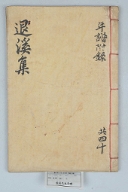 退溪集
年譜附錄
共四十